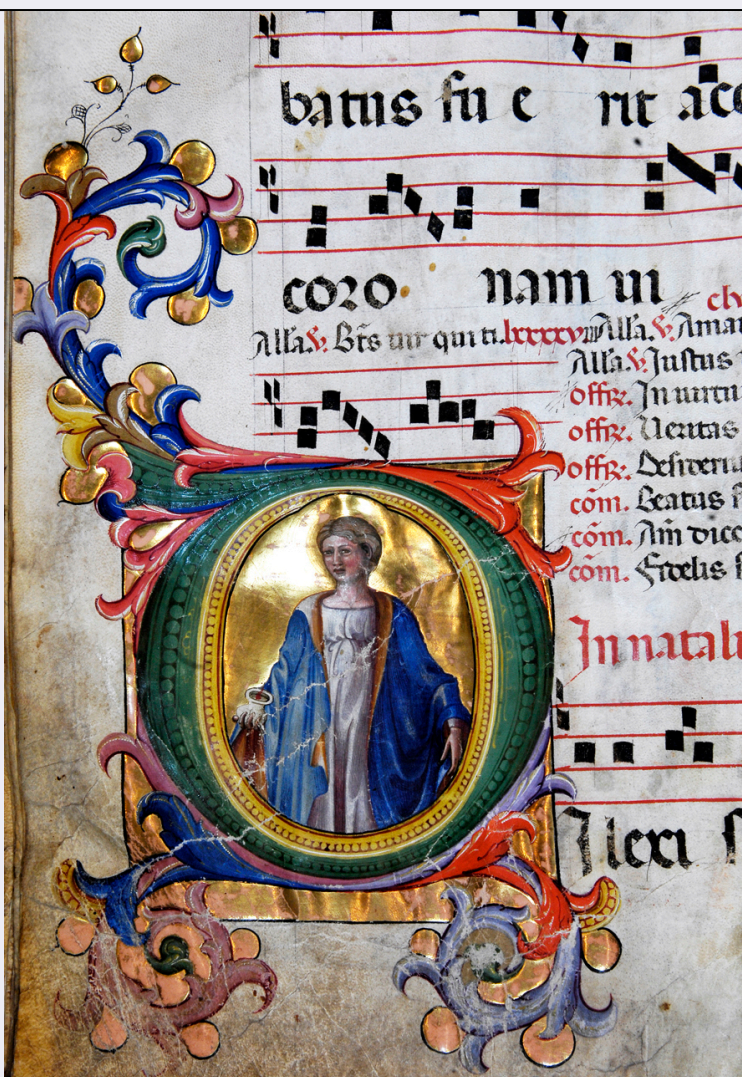 batus fu e rit acc
coro nam ui
Alla. V. Bt̄s uir qui ti. lxxxxviii Alla. V. Amau
Alla. V. Justus
offR. In uirtu
offR. Ueritas
offR. Desideriu
cōm. Beatus
cōm. Am̄ dico
cōm. Fidelis
In natali
Ilexi